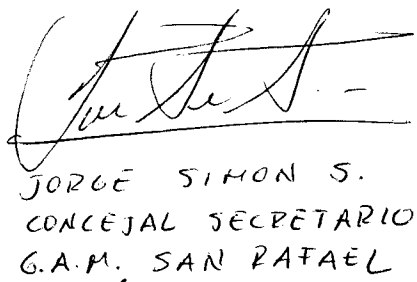 JORGE SIMON S.
CONCEJAL SECRETARIO
G.A.M. SAN RAFAEL